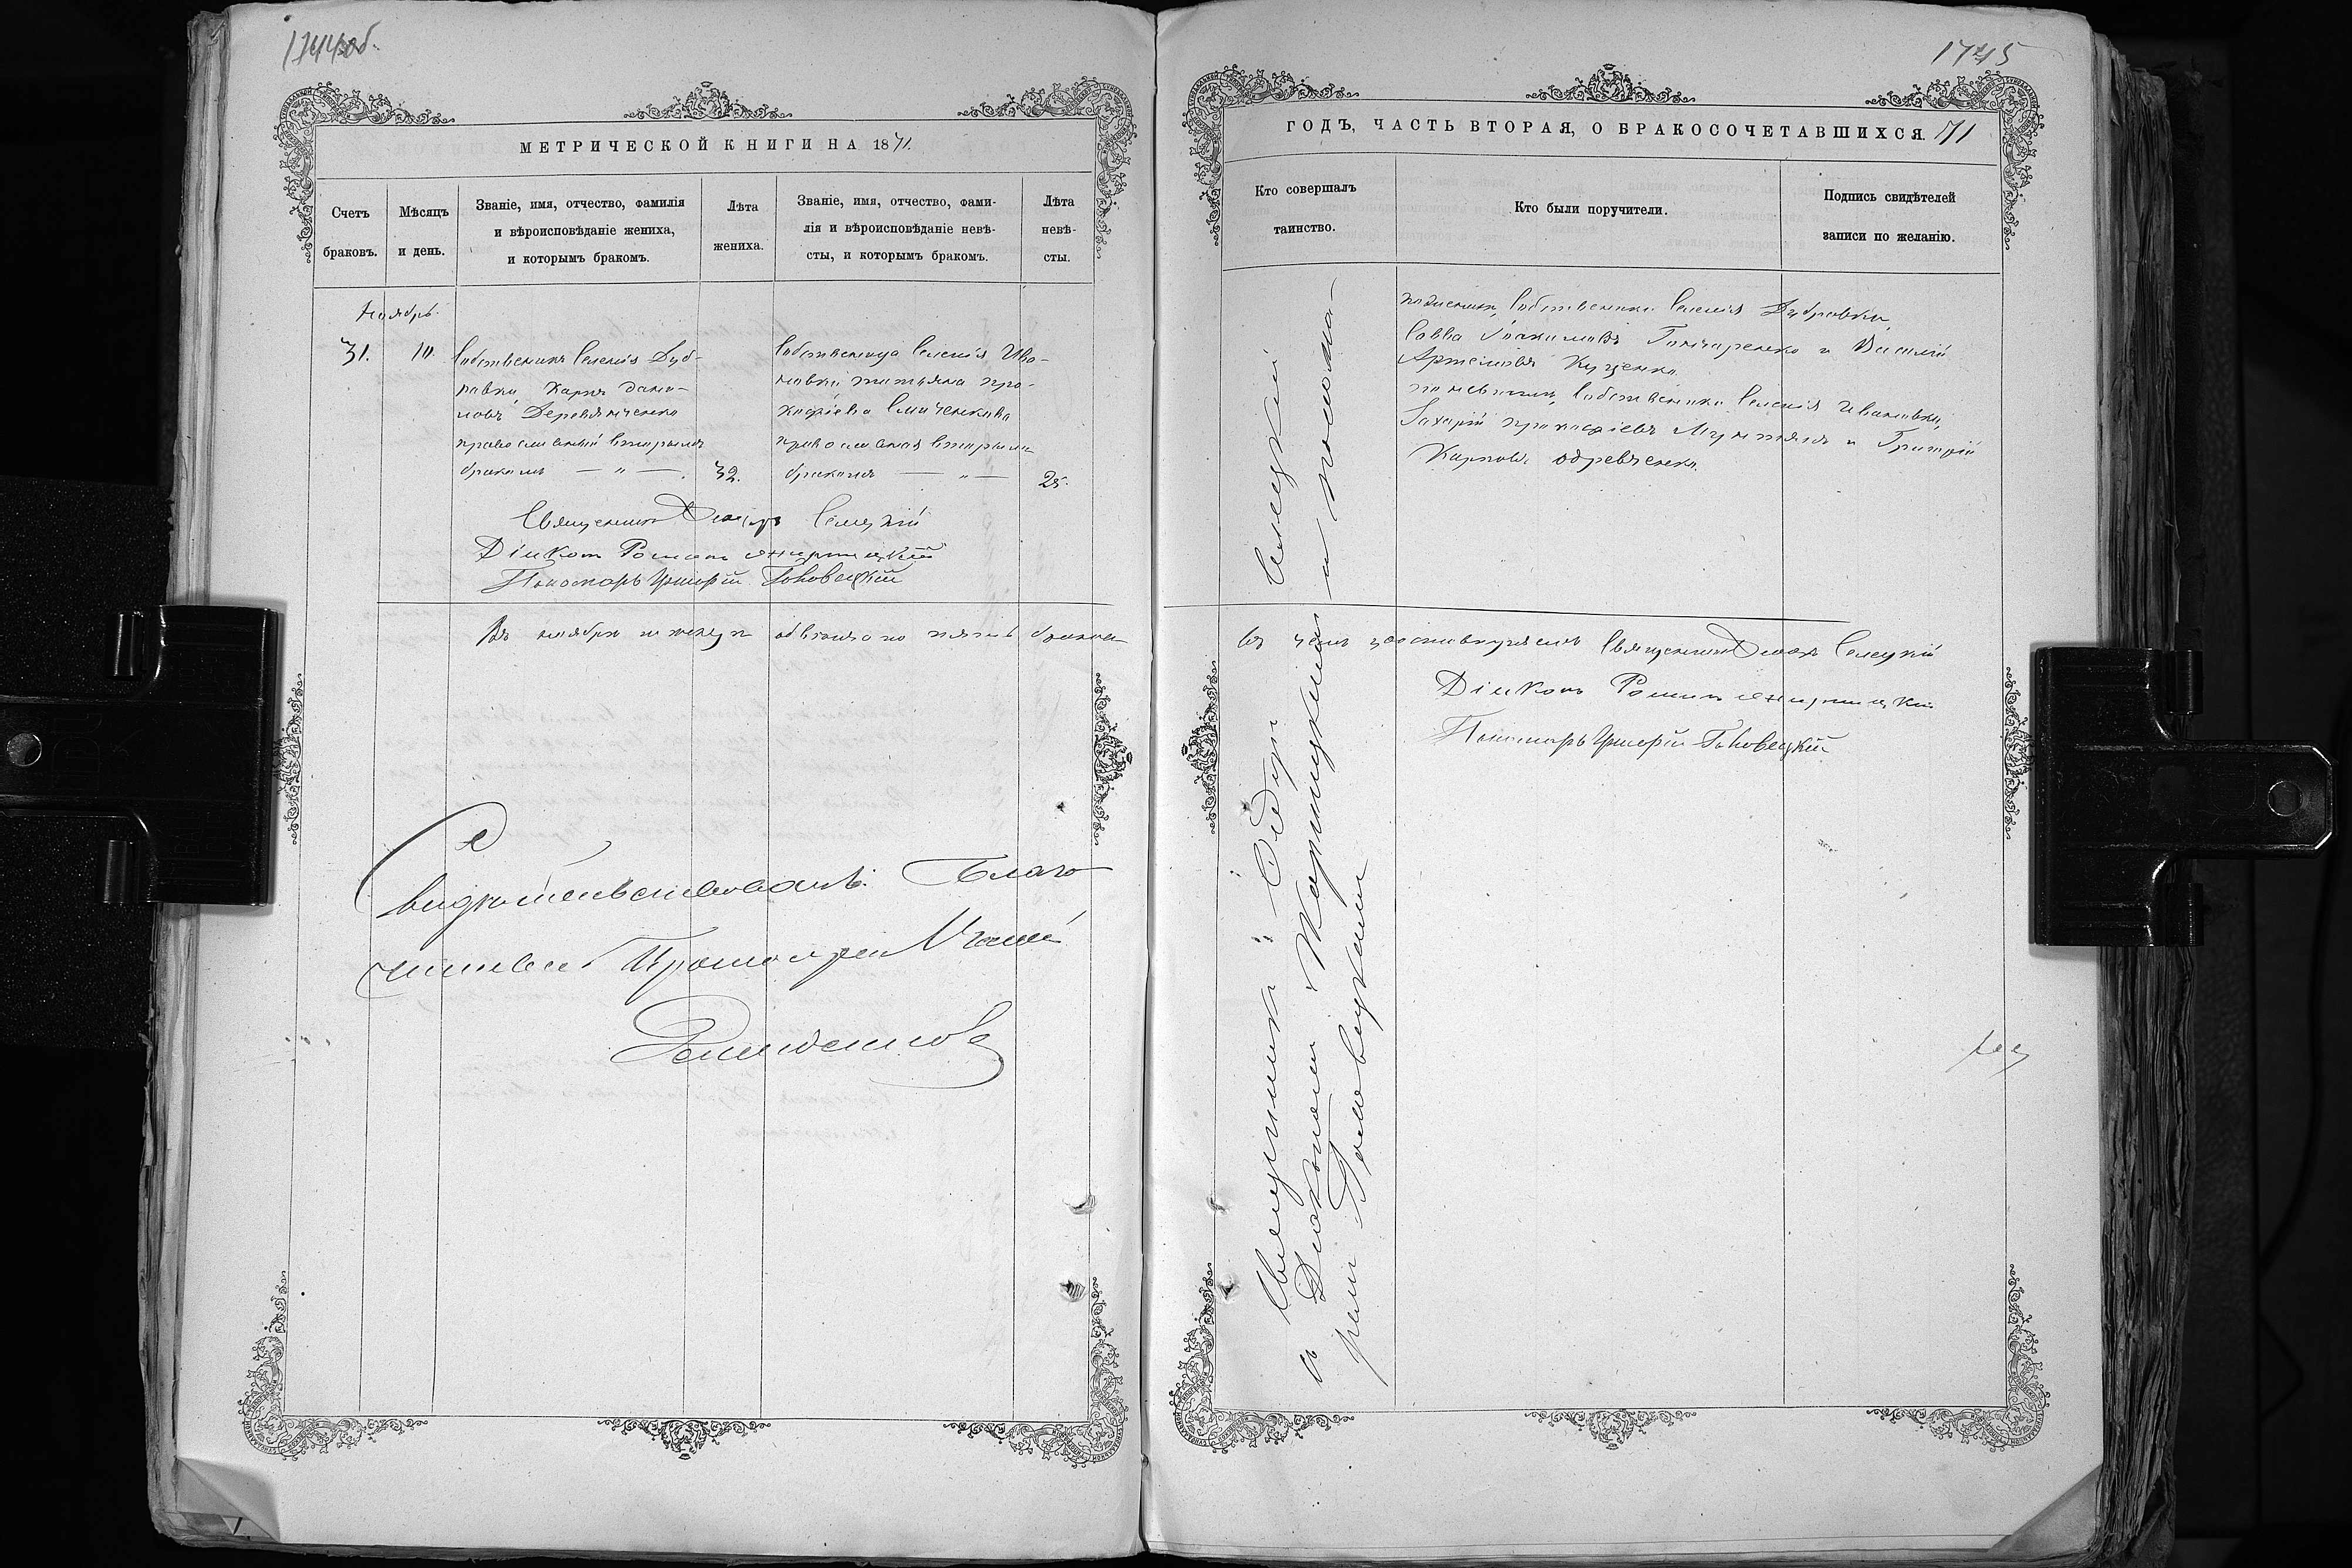 1744об.
МЕТРИЧЕСКОЙ КНИГИ НА 1871.
Счетъ
браковъ.
Мѣсяцъ
и день.
Званіе, имя, отчество, фамилія
и вѣроисповѣданіе жениха,
и которымъ бракомъ.
Лѣта
жениха.
Званіе, имя, отчество, фами-
лія и вѣроисповѣданіе невѣ-
сты, и которымъ бракомъ.
Лѣта
невѣ-
сты.
Ноябрь
31.
10.
Собственникъ Селенія Дуб-
равки, Карпъ Дани-
ловъ Деревянченко
православный вторымъ
бракомъ — „ —.
32.
Собственница Селенія Ива-
новки Татьяна Про-
кофіева
православная вторымъ
бракомъ — „ —
25.
Священникъ Селецкій
Діаконъ Романъ
Пономарь Головецкій
Въ ноябрѣ браков
Свидѣтельствовалъ: Благо
чинный Протоіерей
1745
ГОДЪ, ЧАСТЬ ВТОРАЯ, О БРАКОСОЧЕТАВШИХСЯ. 71
Кто совершалъ
таинство.
Кто были поручители.
Подпись свидѣтелей
записи по желанію.
по женихѣ, Собственники Селенія Дубровки,
Савва Іоакимовъ Гончаренко и Василій
Артемовъ Куценко.
по невѣстѣ, Собственники Селенія Ивановки,
Захарій Прокофіевъ и Григорій
Карповъ
Священникъ Ѳедоръ Селецкій
съ Діакономъ и понома-
ремъ Головецкимъ
Въ чемъ удостовѣряемъ Священникъ Селецкій
Діаконъ Романъ
Пономарь Головецкій